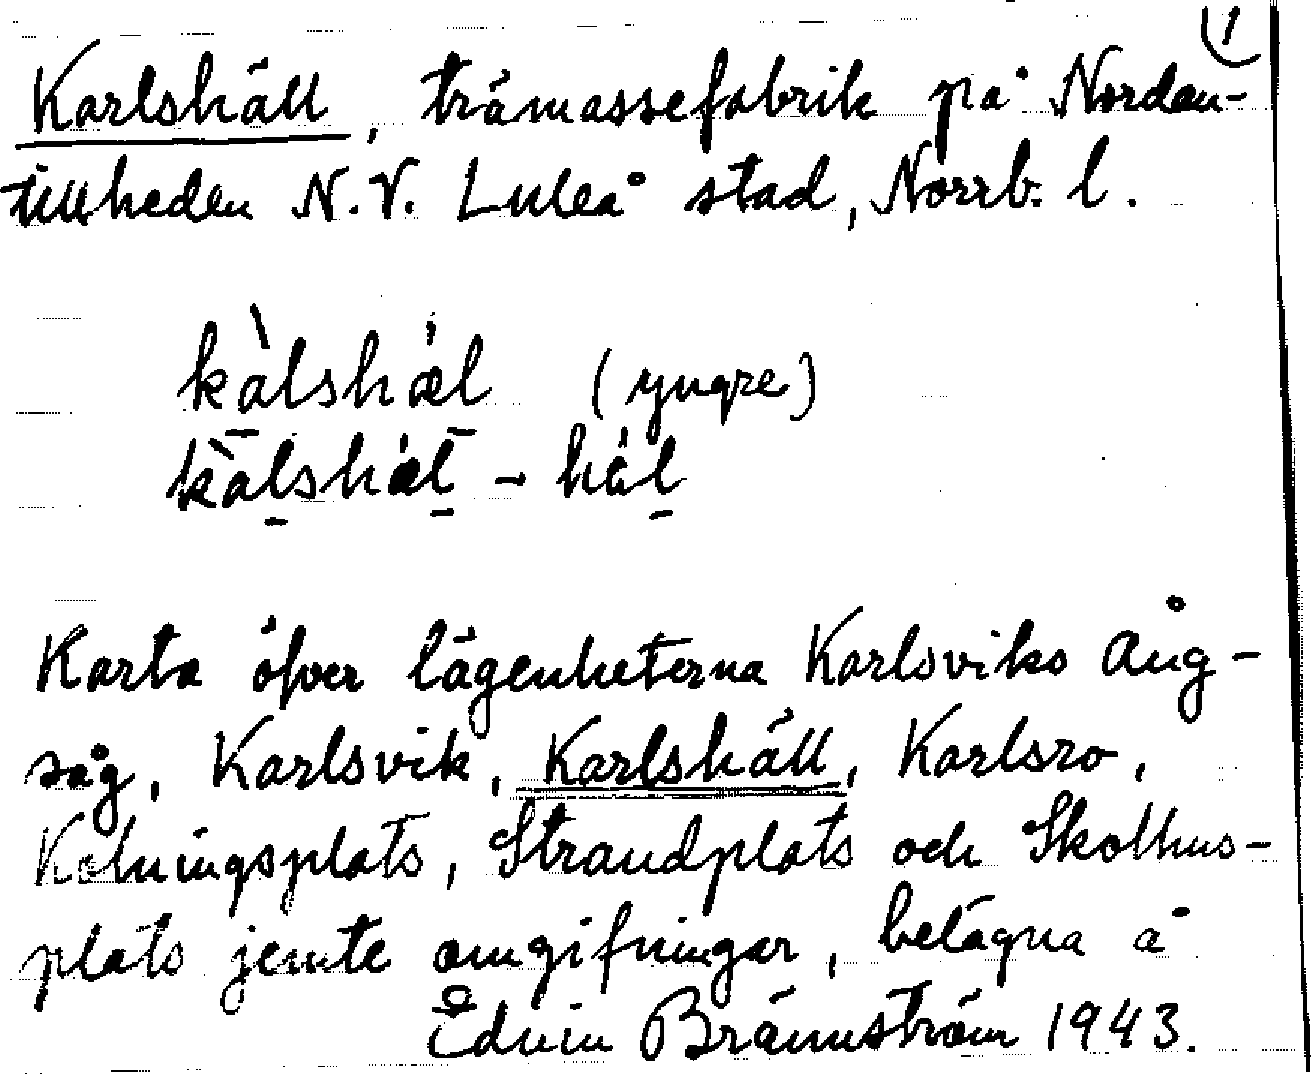 1
Karlshäll, trämassefabrik på Nordan-
tillheden N.V. Luleå stad, Norrb. l.
kàlshæ̀l (yngre)
kàlshæl - häl
Karta öfver lägenheterna Karlsviks Ång-
såg, Karlsvik, Karlshäll, Karlsro,
Kolningsplats, Strandplats och Skolhus-
plats jemte omgifningar, belägna å
Edvin Brännström 1943.